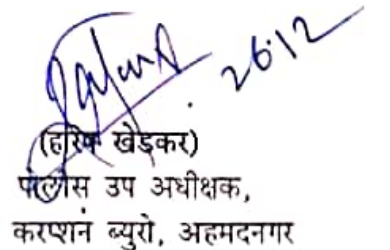 26.12
(हरिष खेडकर)
पोलीस उप अधीक्षक,
करप्शन ब्युरो, अहमदनगर